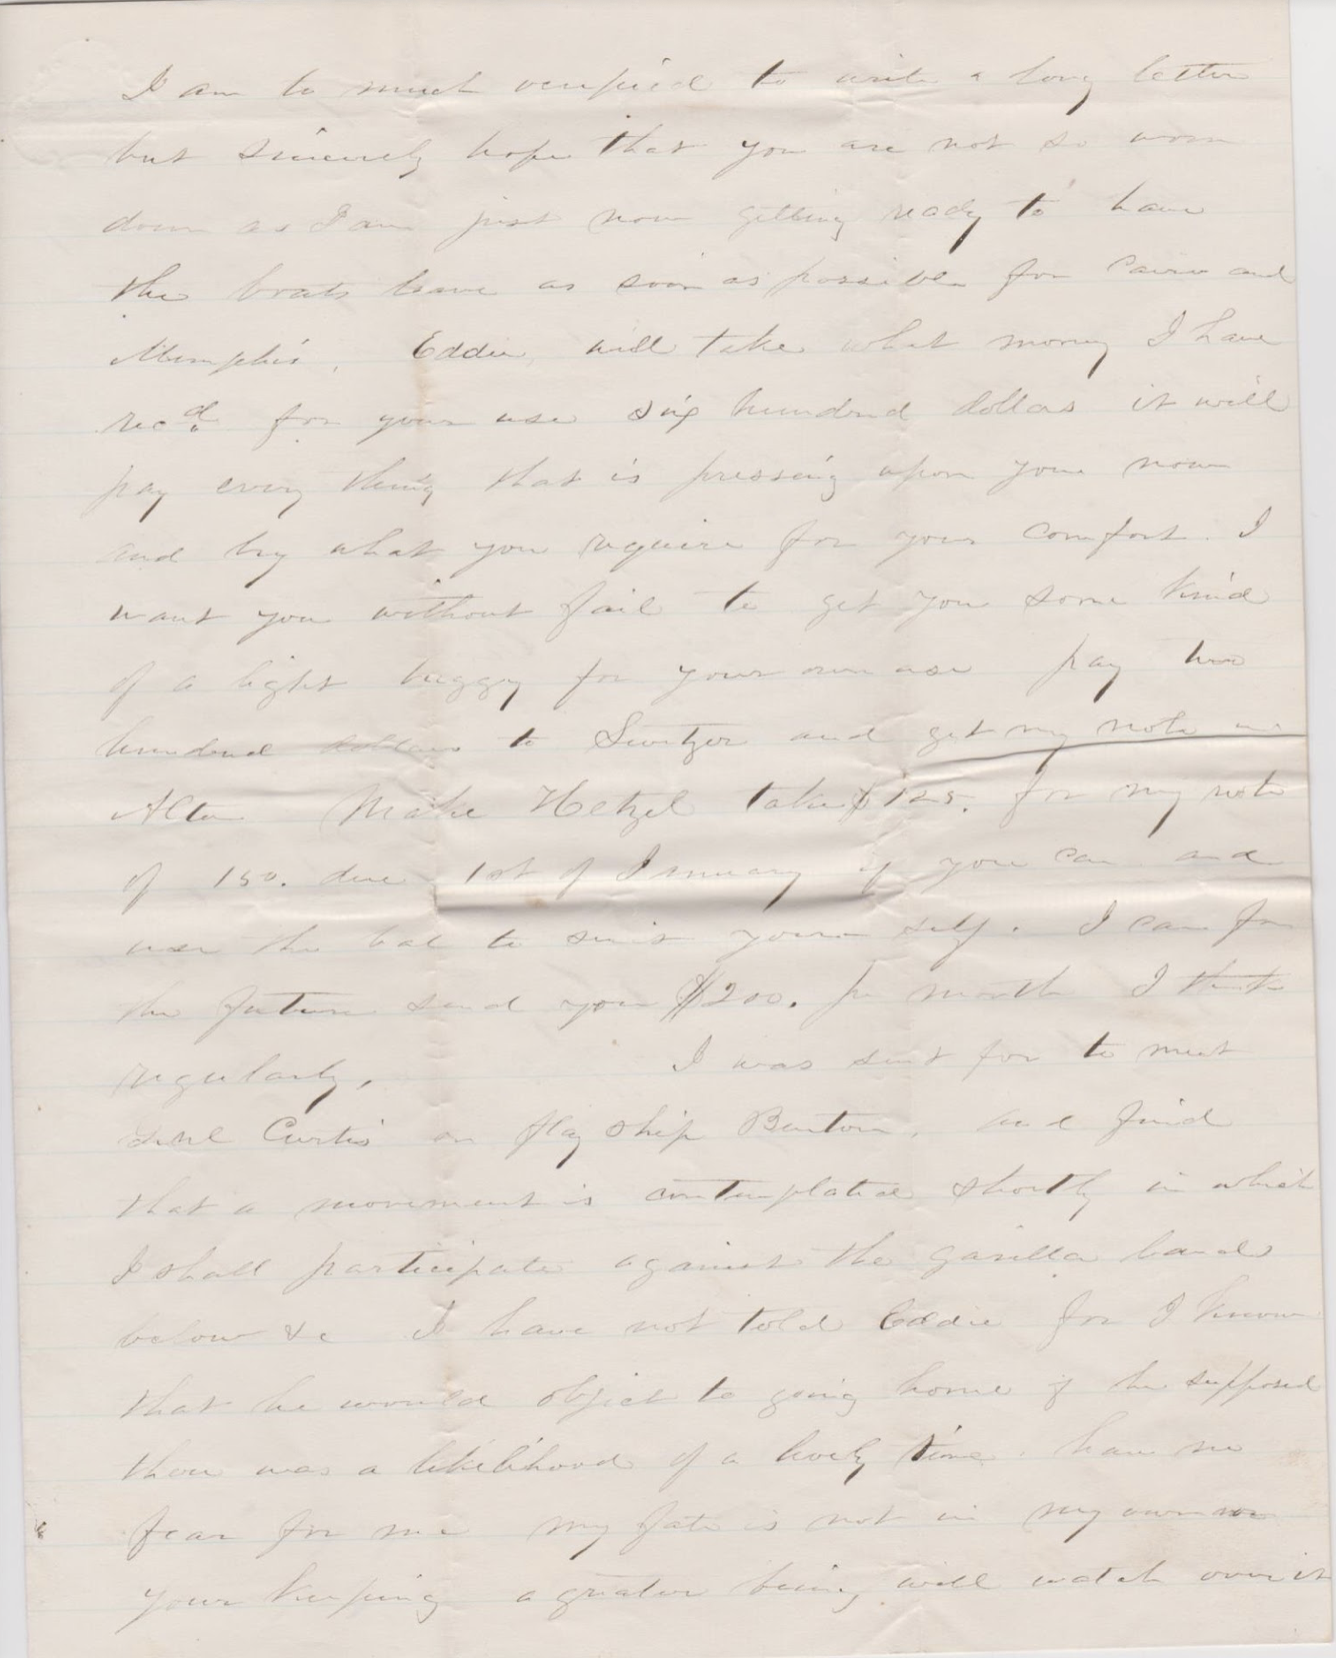 I am to much occupied to write a long letter
but sincerely hope that you are not so worn
down as I am just now getting ready to have
the boats leave as soon as possible for Cairo and
Memphis. Eddie, will take what money I have
recd. for your use six hundred dollars it will
pay every thing that is pressing upon you now
and by what you require for your comfort. I
want you without fail to get you some kind
of a light buggy for your own use pay two
hundred dollars to Switzer and get my note in
Alton Make Hetzel take $125. for my note
of 150. due 1st of January if you can and
use the bal to suit your self. I can for
the future send you $200. pr month I think
regularly. I was sent for to meet
Genl Curtis on flag ship Benton, and find
that a movement is contemplated shortly in which
I shall participate against the garilla bands
below &c I have not told Eddie for I know
that he would object to going home if he supposed
there was a likelihood of a lively time. have no
fear for me my fate is not in my own or
your keeping a greater being will watch over it